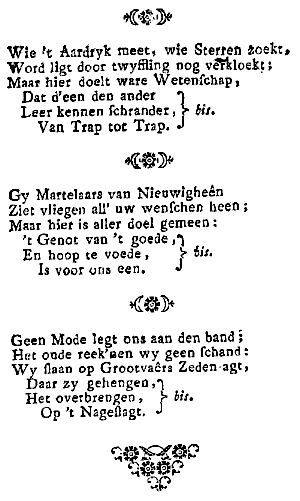 Wie 't Aardryk meet, wie Sterren zoekt,
Word ligt door twyffling nog verkloekt;
Maar hier doelt ware Wetenſchap,
Dat d'een den ander
Leer kennen ſchrander, bis.
Van Trap tot Trap.
Gy Martelaars van Nieuwigheên
Ziet vliegen all' uw wenſchen heen;
Maar hier is aller doel gemeen:
't Genot van 't goede,
En hoop te voede, bis.
Is voor ons een.
Geen Mode legt ons aan den band;
Het oude reek'nen wy geen ſchand:
Wy ſlaan op Grootvaêrs Zeden agt,
Daar zy gehengen,
Het overbrengen, bis.
Op 't Nageſlagt.